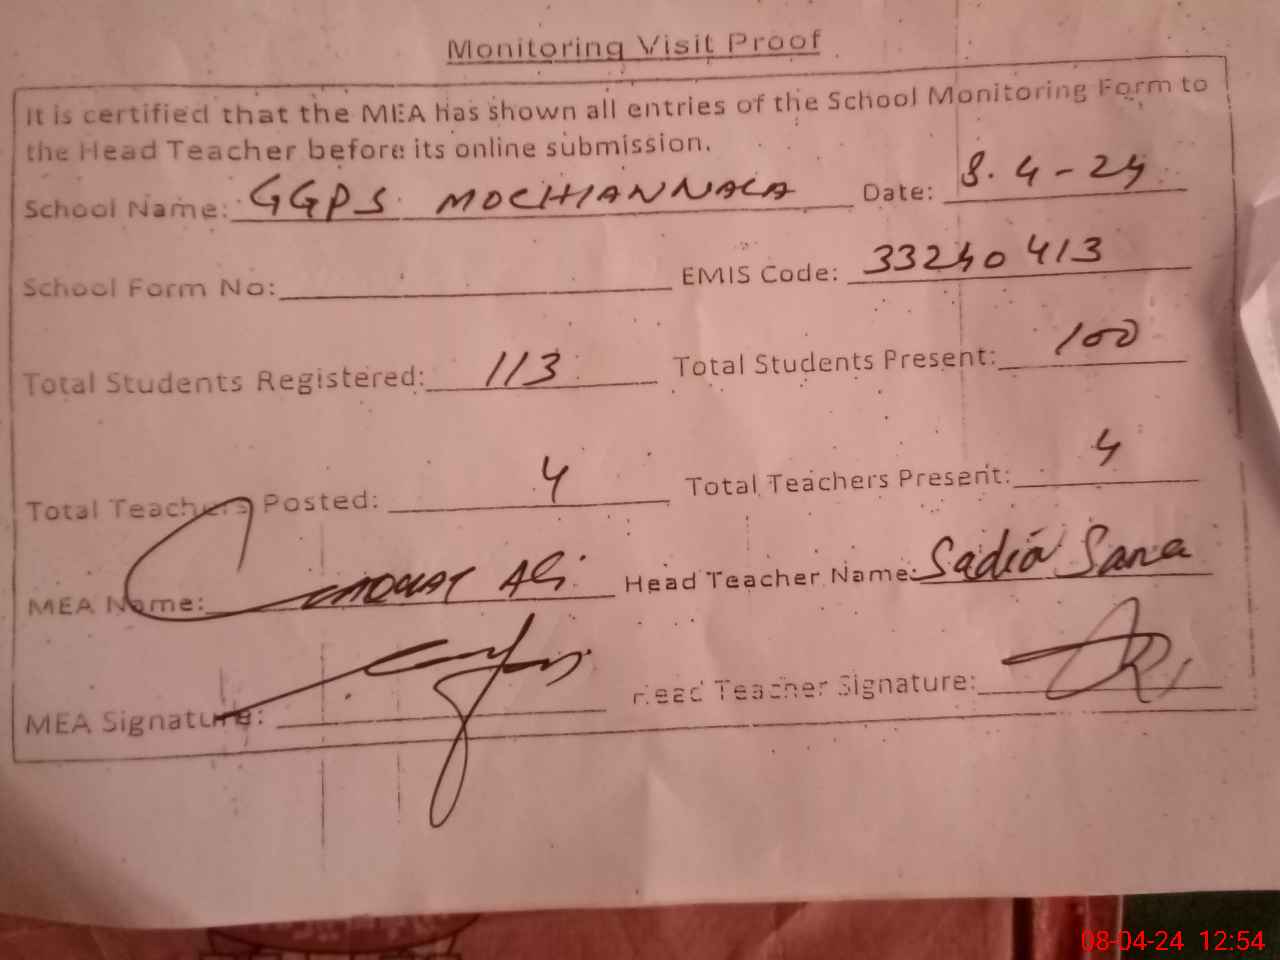 Monitoring Visit Proof
It is certified that the MEA has shown all entries of the School Monitoring Form to
the Head Teacher before its online submission.
School Name: GGPS MOCHIANNALA Date: 8.4-24
School Form No: EMIS Code: 33240413
Total Students Registered: 113 Total Students Present: 100
Total Teachers Posted: 4 Total Teachers Present: 4
MEA Name: Ali Head Teacher Name: Sadia Sana
MEA Signature: Head Teacher Signature:
08-04-24 12:54